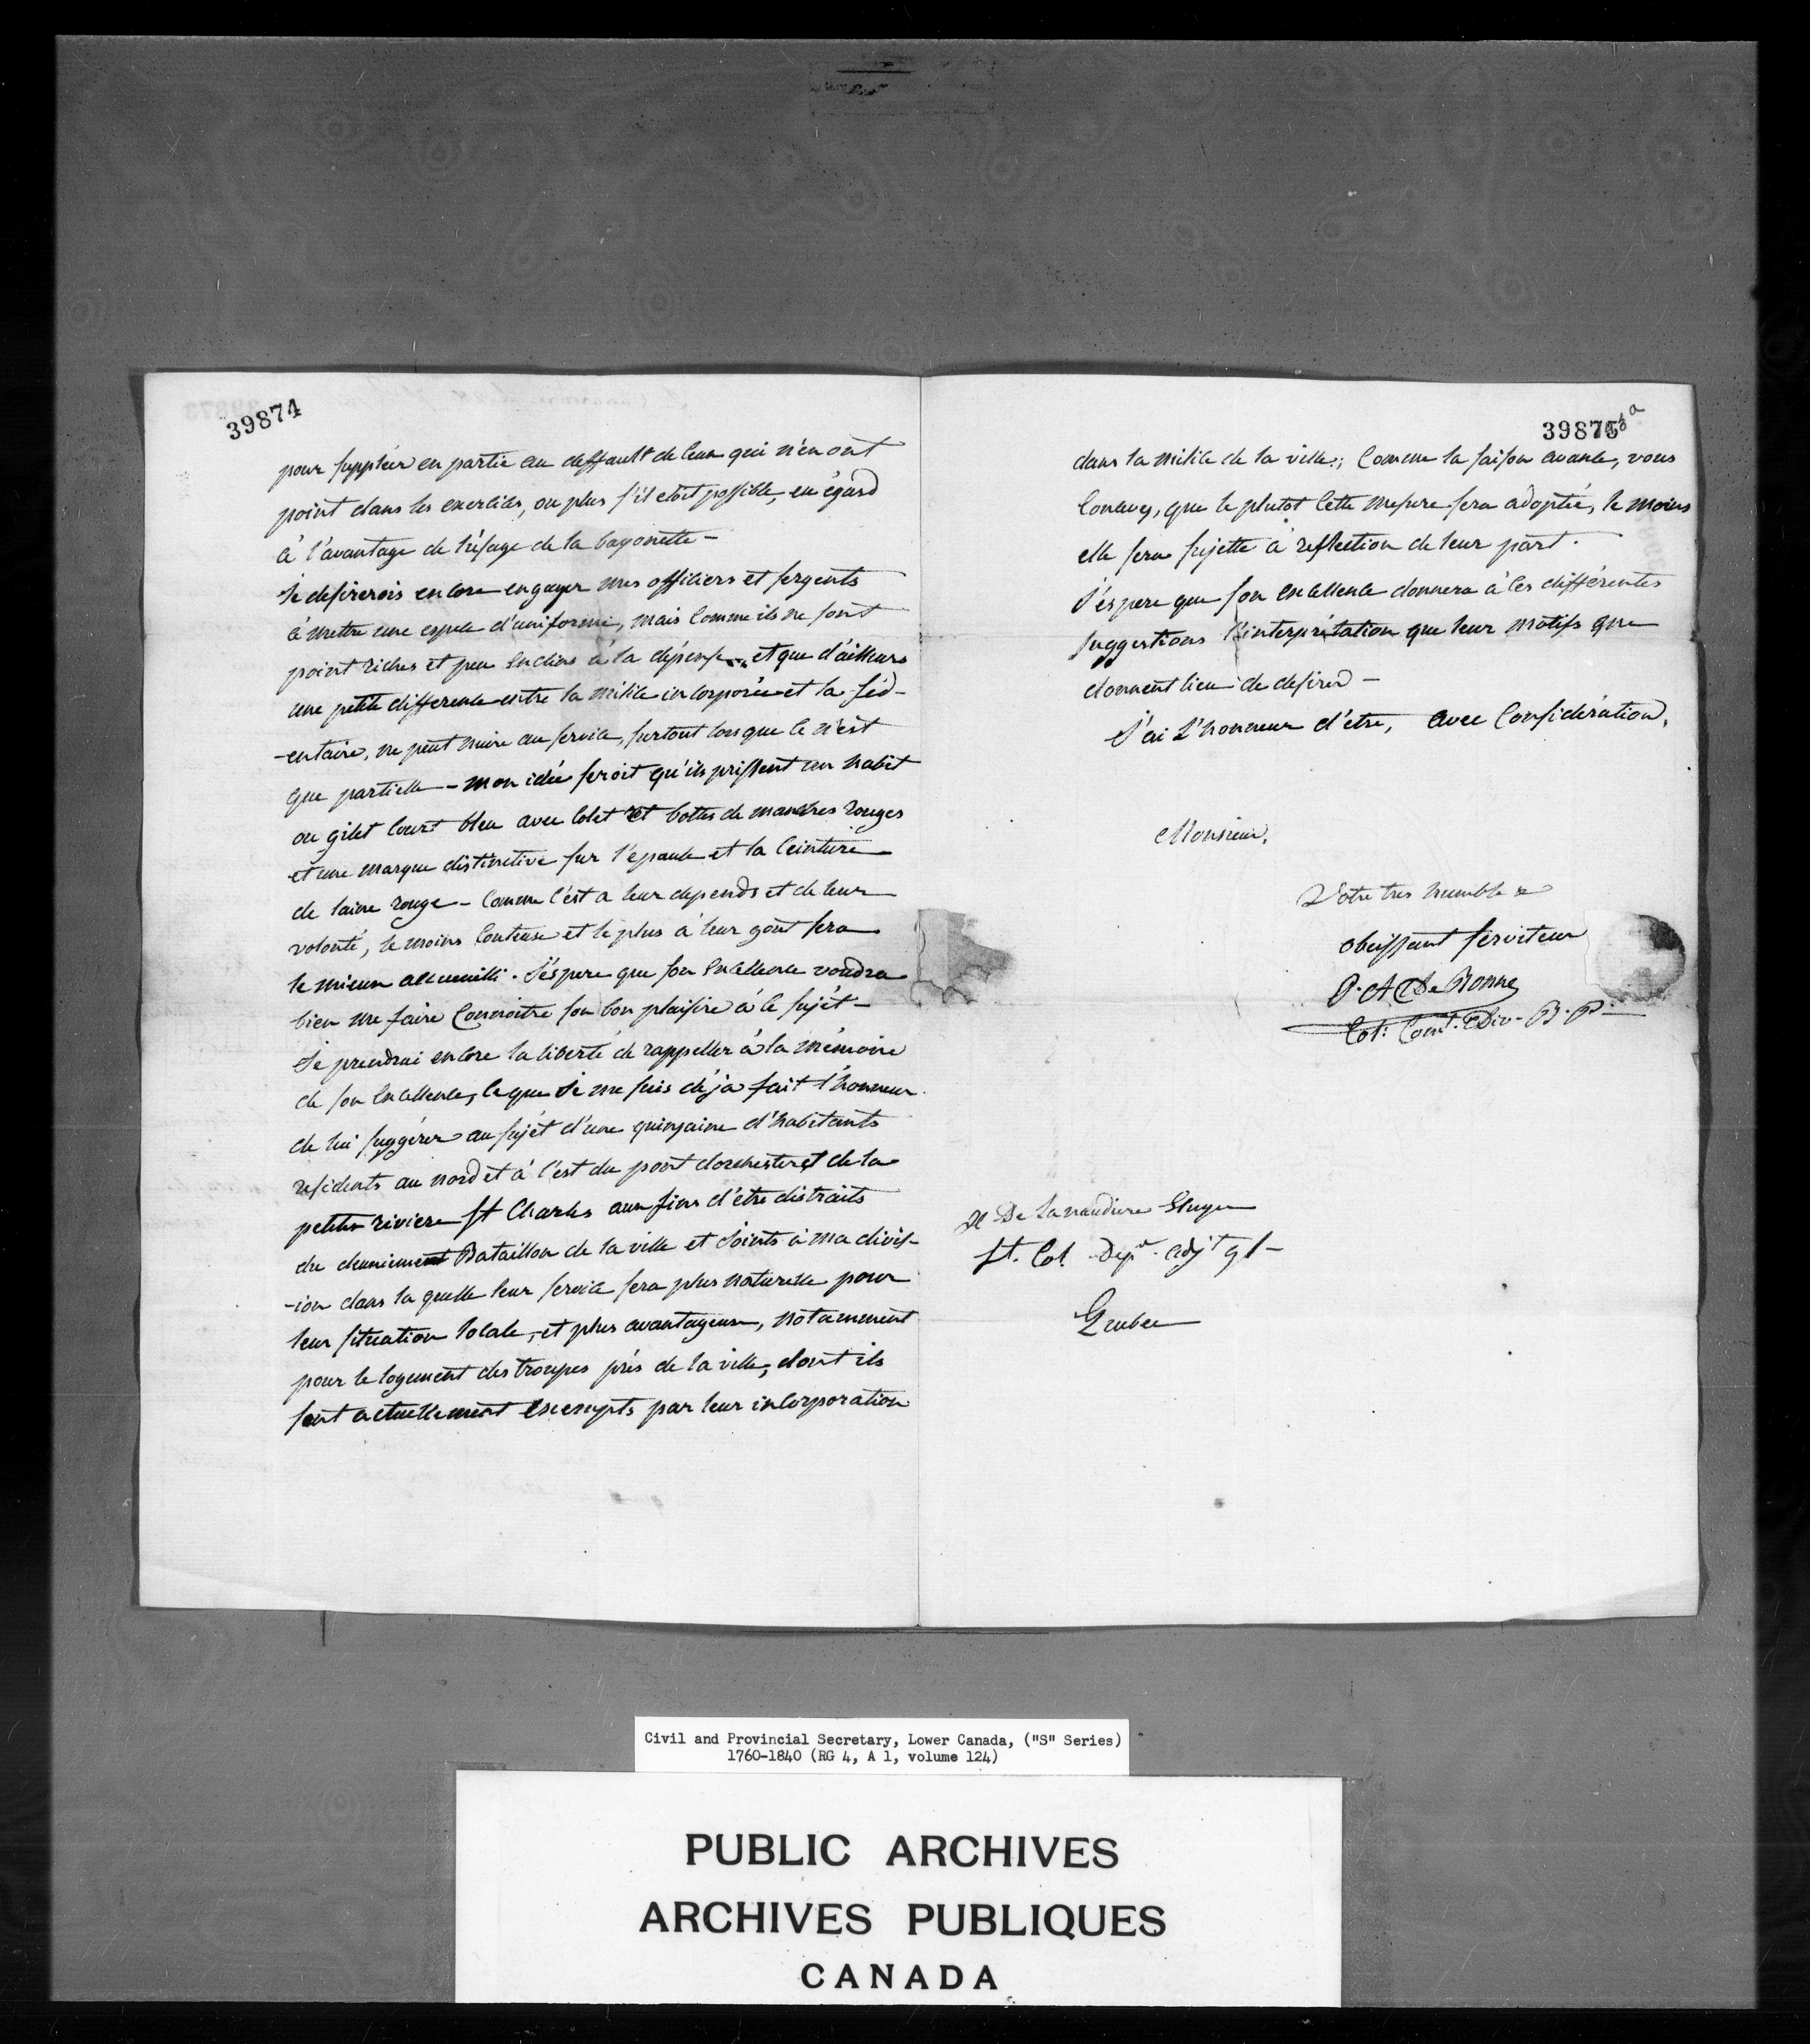 39874
pour suppléer en partie au deffault de ceux qui n'en ont
point dans les exercices, ou plus s'il etoit possible, eu égard
à l'avantage de l'usage de la bayonette -
Je desirerois encore engager mes officiers et sergents
à mettre une espece d'uniforme, mais comme ils ne sont
point riches et peu enclins à la dépense et que d'ailleurs
une petite difference entre la milice incorporée et la séd-
-entaire, ne peut nuire au service, surtout lorsque ce n'est
que partielle - mon idée seroit qu'ils prissent un habit
ou gilet court bleu avec colet et bottes de manches rouges
et une marque distinctive sur l'epaule et la ceinture
de laine rouge - comme c'est a leur depends et de leur
volonté, le moins couteux et le plus à leur goût sera
le mieux accueilli. J'éspere que son Excellence voudra
bien me faire connoitre son bon plaisire à ce sujét -
Je prendrai encore la liberté de rappeller à la mémoire
de son Excellence, ce que Je me suis déja fait l'honneur
de lui suggérer au sujét d'une quinzaine d'habitants
residents au nord et à l'est du pont dorchester et de la
petite riviere St Charles aux fins d'être distraits
du deuxieme Bataillon de la ville et Joints à ma divis-
-ion dans la quelle leur service sera plus naturelle pour
leur situation locale, et plus avantageux, notamment
pour le logement des troupes près de la ville, dont ils
sont actuellement exempts par leur incorporation
39875
dans la milice de la ville; comme la saison avance, vous
concevez, que le plutot cette mesure sera adoptée, le moins
elle sera sujette à reflection de leur part.
J'éspere que son Excellence donnera à ces différentes
suggestions l'interprétation que leur motifs que
donnent lieu de desirer -
J'ai L'honneur d'etre, avec Considération,
Monsieur,
Votre tres humble &
obeissant serviteur
P. A. De Bonne
Col: Com.t Div. B. P.
De Lanaudiere Ecuyer
Lt. Col. Dep. Adj.t Gl -
Quebec
Civil and Provincial Secretary, Lower Canada, ("S" Series)
1760-1840 (RG 4, A 1, volume 124)
PUBLIC ARCHIVES
ARCHIVES PUBLIQUES
CANADA